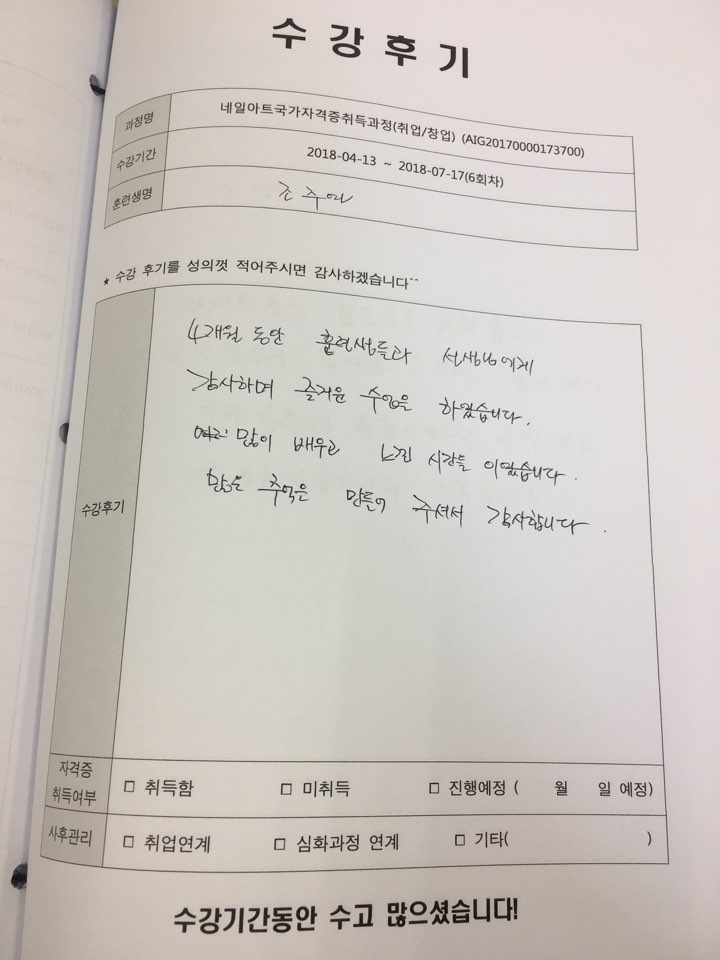 수강후기
과정명 네일아트국가자격증취득과정(취업/창업) (AIG20170000173700)
수강기간 2018-04-13 ~ 2018-07-17(6회차)
훈련생명 조주
★ 수강 후기를 성의껏 적어주시면 감사하겠습니다^^
4개월 동안 훈련생들과 선생님에게
감사하며 즐거운 수업을 하였습니다.
많이 배우고 느낀 시간들 이였습니다.
수강후기
많은 추억은 만들어 주셔서 감사합니다.
자격증
취득여부 □ 취득함 □ 미취득 □ 진행예정 ( 월 일 예정)
사후관리 □ 취업연계 □ 심화과정 연계 □ 기타( )
수강기간동안 수고 많으셨습니다!